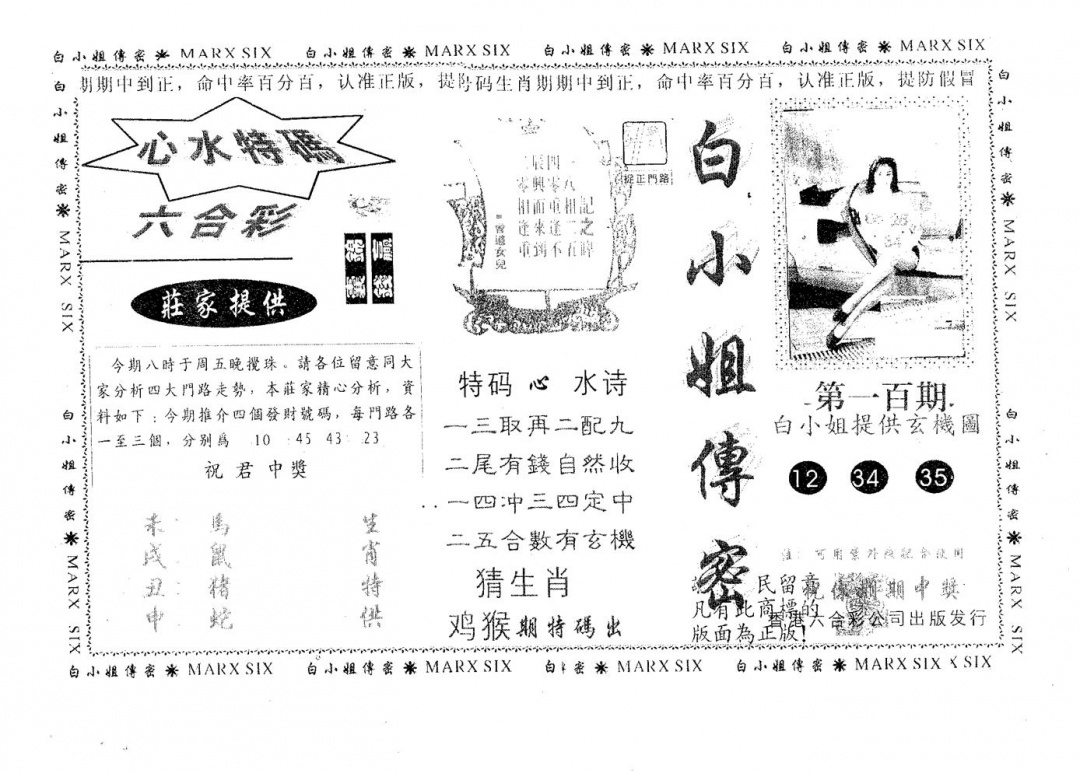 白小姐傳密 MARX SIX 白小姐傳密 MARX SIX 白小姐傳密 MARX SIX 白小姐傳密 MARX SIX
期期中到正，命中率百分百，认准正版，提防码生肖期期中到正，命中率百分百，认准正版，提防假冒
心水特碼
六合彩
莊家提供
今期八時于周五晚攪珠。請各位留意同大
家分析四大門路走勢，本莊家精心分析，資
料如下：今期推介四個發財號碼，每門路各
一至三個，分別爲 10 45 43 23
祝君中獎
未 馬 生
戌 鼠 肖
丑 豬 特
申 蛇 供
捉正門路
記之碑
一八相二五
四零重逢不
辰興而來到
零相逢重
曾道女兒
特码 心 水诗
一三取再二配九
二尾有錢自然收
一四冲三四定中
二五合數有玄機
猜生肖
鸡猴期特碼出
白小姐傳密
民留意
凡有此商標的
版面為正版！
第一百期
白小姐提供玄機圖
12 34 35
注：可用紫外線配合使用
期中獎
香港六合彩公司出版发行
白小姐傳密 MARX SIX
白小姐傳密 MARX SIX
白小姐傳密 MARX SIX
白小姐傳密 MARX SIX
白小姐傳密 MARX SIX 白小姐傳密 MARX SIX 白 密 MARX SIX 白小姐傳密 MARX SIX X SIX